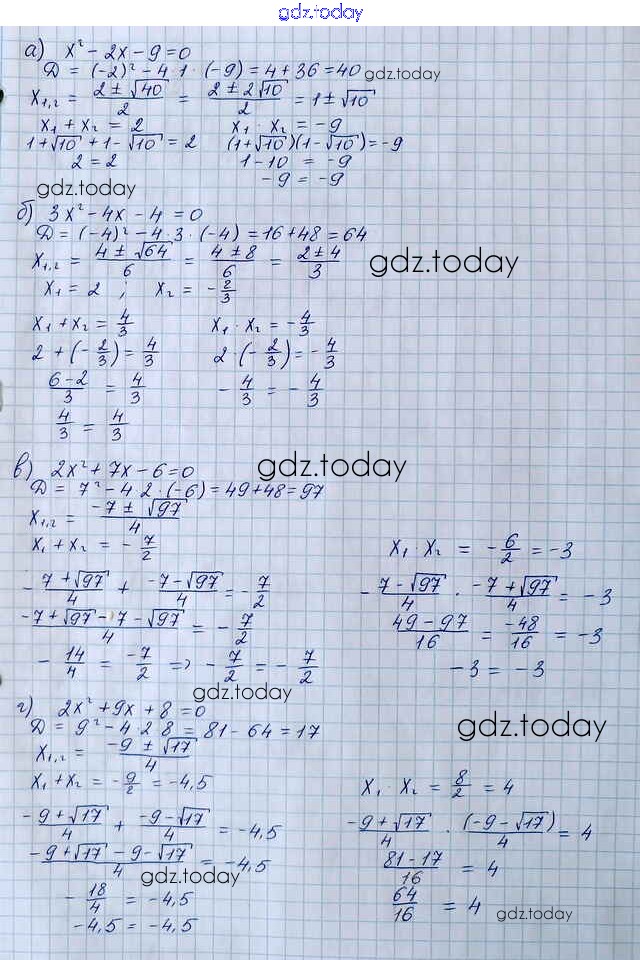 gdz.today
а) x² - 2x - 9 = 0
D = (-2)² - 4·1·(-9) = 4 + 36 = 40 gdz.today
x₁,₂ = (2 ± √40)/2 = (2 ± 2√10)/2 = 1 ± √10
x₁ + x₂ = 2    x₁ · x₂ = -9
1+√10 + 1-√10 = 2    (1+√10)(1-√10) = -9
2 = 2    1 - 10 = -9
gdz.today    -9 = -9
б) 3x² - 4x - 4 = 0
D = (-4)² - 4·3·(-4) = 16 + 48 = 64
x₁,₂ = (4 ± √64)/6 = (4 ± 8)/6 = (2 ± 4)/3    gdz.today
x₁ = 2 ; x₂ = -2/3
x₁ + x₂ = 4/3    x₁ · x₂ = -4/3
2 + (-2/3) = 4/3    2·(-2/3) = -4/3
(6-2)/3 = 4/3    -4/3 = -4/3
4/3 = 4/3
в) 2x² + 7x - 6 = 0    gdz.today
D = 7² - 4 2·(-6) = 49 + 48 = 97
x₁,₂ = (-7 ± √97)/4
x₁ + x₂ = -7/2    x₁ · x₂ = -6/2 = -3
-(7+√97)/4 + (-7-√97)/4 = -7/2    -(7-√97)/4 · (-7+√97)/4 = -3
(-7+√97-7-√97)/4 = -7/2    (49-97)/16 = -48/16 = -3
-14/4 = -7/2 => -7/2 = -7/2    -3 = -3
gdz.today
г) 2x² + 9x + 8 = 0
D = 9² - 4·2 8 = 81 - 64 = 17    gdz.today
x₁,₂ = (-9 ± √17)/4
x₁ + x₂ = -9/2 = -4,5    x₁ · x₂ = 8/2 = 4
(-9+√17)/4 + (-9-√17)/4 = -4,5    (-9+√17)/4 · (-9-√17)/4 = 4
(-9+√17-9-√17)/4 = -4,5    (81-17)/16 = 4
gdz.today
-18/4 = -4,5    64/16 = 4    gdz.today
-4,5 = -4,5